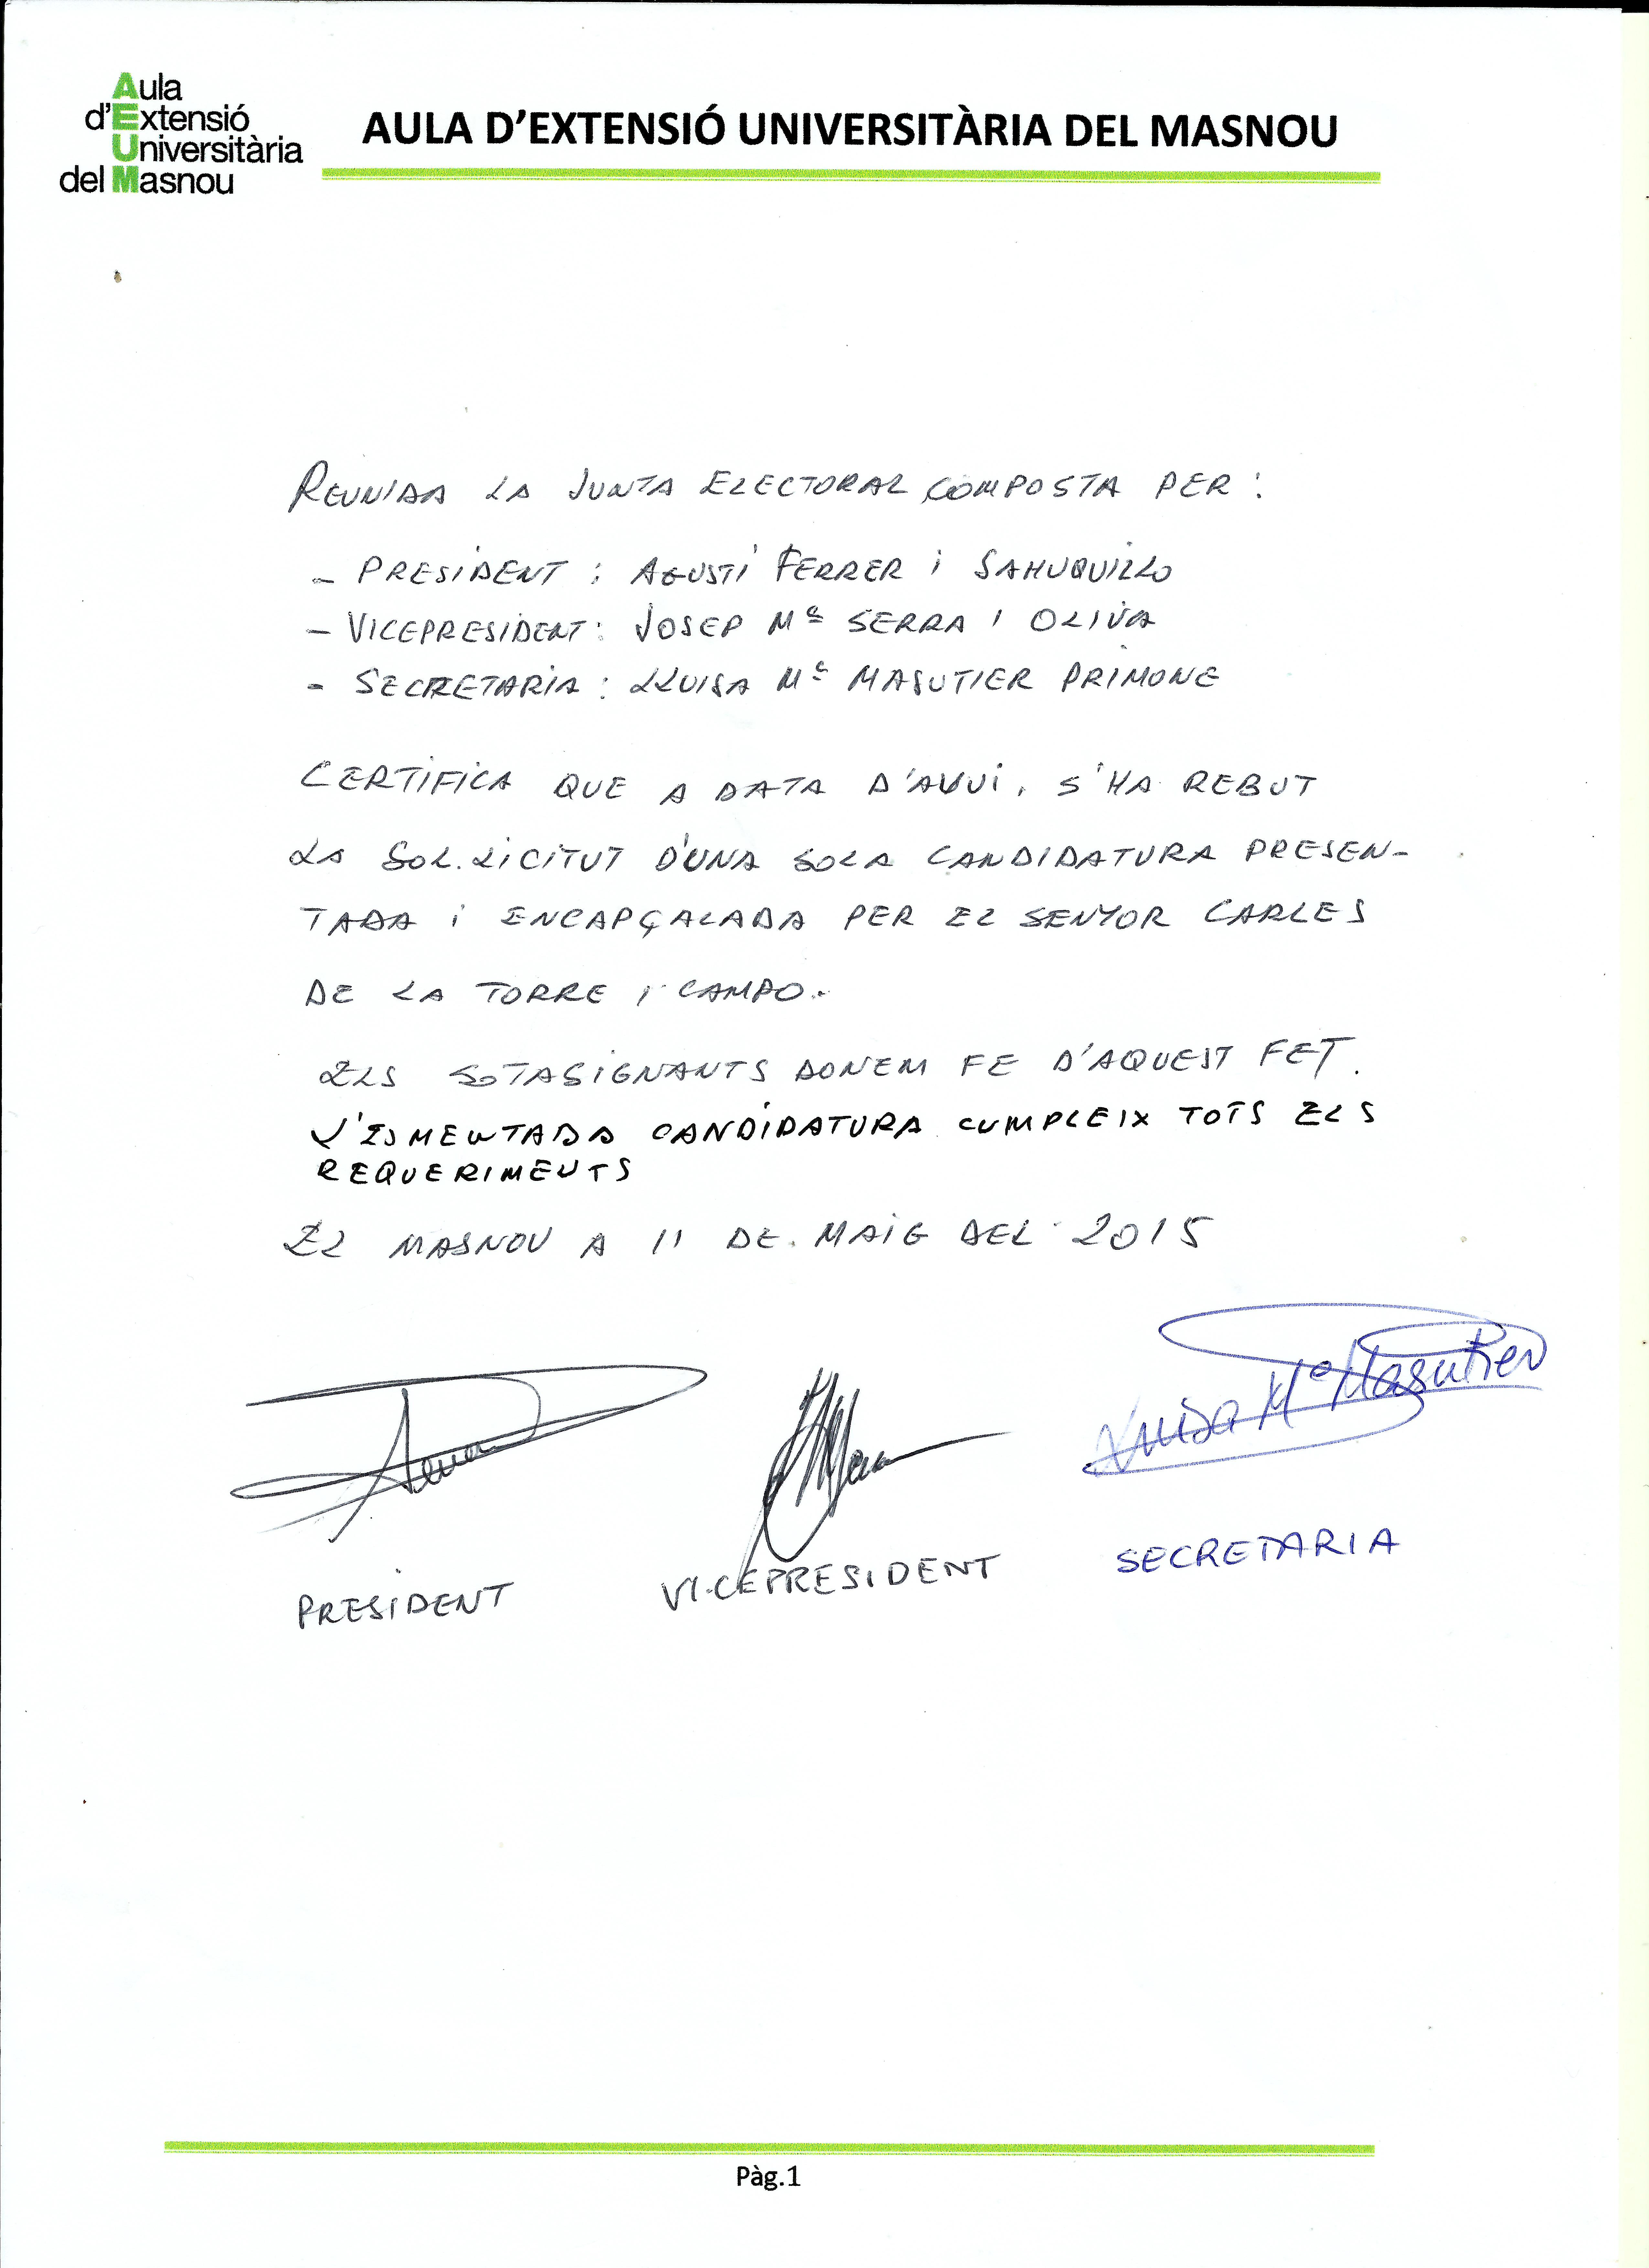 Aula
d'Extensió
Universitària
del Masnou
AULA D'EXTENSIÓ UNIVERSITÀRIA DEL MASNOU
REUNIDA LA JUNTA ELECTORAL COMPOSTA PER:
- PRESIDENT: AGUSTÍ FERRER i SAHUQUILLO
- VICEPRESIDENT: JOSEP Mª SERRA I OLIVA
- SECRETARIA: LLUISA Mª MASUTIER PRIMONE
CERTIFICA QUE A DATA D'AVUI, S'HA REBUT
LA SOL.LICITUT D'UNA SOLA CANDIDATURA PRESEN-
TADA i ENCAPÇALADA PER EL SENYOR CARLES
DE LA TORRE I CAMPO.
ELS SOTASIGNANTS DONEM FE D'AQUEST FET.
L'ESMENTADA CANDIDATURA CUMPLEIX TOTS ELS
REQUERIMENTS
EL MASNOU A 11 DE MAIG DEL 2015
Lluïsa Mª Masutier
PRESIDENT VICEPRESIDENT SECRETARIA
Pàg.1